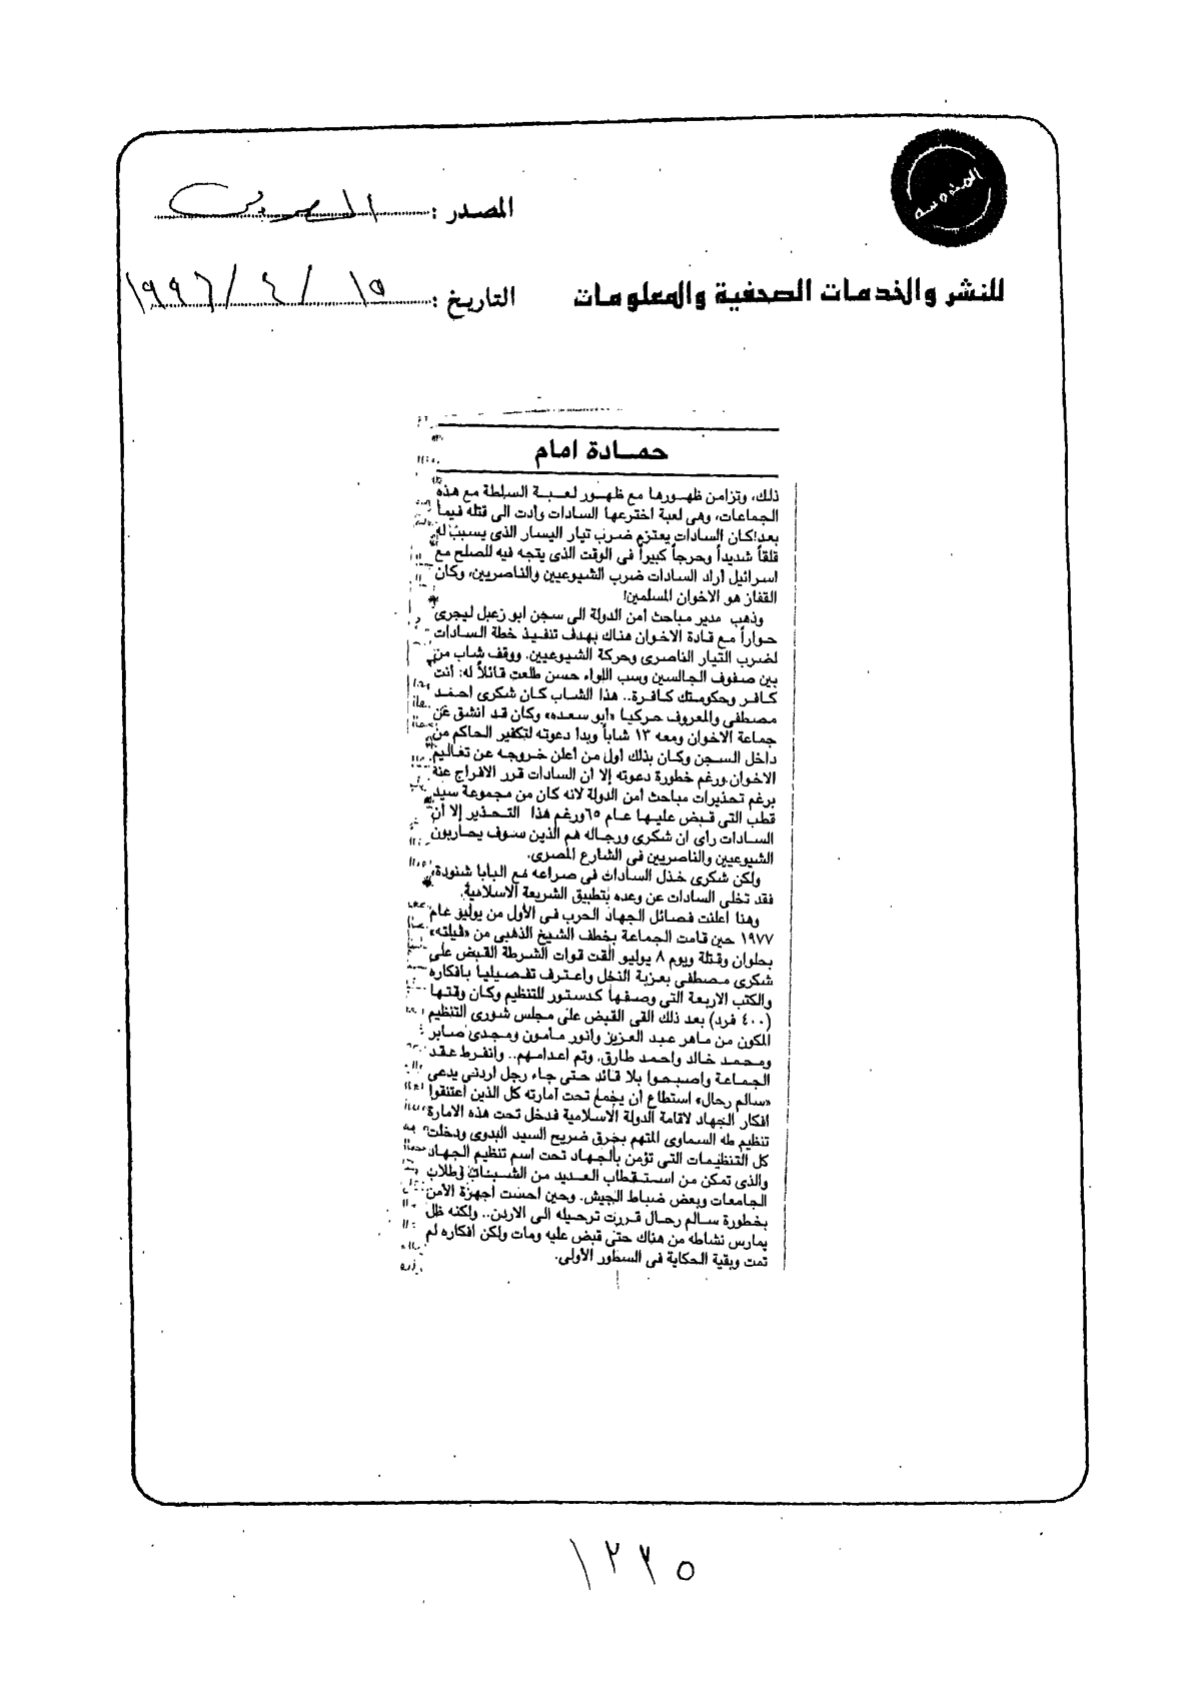 المصدر : العربي
للنشر والخدمات الصحفية والمعلومات
التاريخ : ١٥ / ٤ / ١٩٩٦
حمادة امام
ذلك، وتزامن ظهورها مع ظهور لعبة السلطة مع هذه
الجماعات، وهى لعبة اخترعها السادات وأدت الى قتله فيما
بعد!كان السادات يعتزم ضرب تيار اليسار الذى يسبب له
قلقاً شديداً وحرجاً كبيراً فى الوقت الذى يتجه فيه للصلح مع
اسرائيل أراد السادات ضرب الشيوعيين والناصريين، وكان
القفاز هو الاخوان المسلمين!
وذهب مدير مباحث أمن الدولة الى سجن ابو زعبل ليجرى
حواراً مع قادة الاخوان هناك بهدف تنفيذ خطة السادات
لضرب التيار الناصرى وحركة الشيوعيين. ووقف شاب من
بين صفوف الجالسين وسب اللواء حسن طلعت قائلاً له: أنت
كافر وحكومتك كافرة.. هذا الشاب كان شكرى احمد
مصطفى والمعروف حركيا «أبو سعده» وكان قد انشق عن
جماعة الاخوان ومعه ١٣ شاباً وبدا دعوته لتكفير الحاكم من
داخل السجن وكان بذلك أول من أعلن خروجه عن تعاليم
الاخوان ورغم خطورة دعوته إلا أن السادات قرر الافراج عنه
برغم تحذيرات مباحث أمن الدولة لانه كان من مجموعة سيد
قطب التى قبض عليها عام ٦٥ ورغم هذا التحذير إلا أن
السادات رأى ان شكرى ورجاله هم الذين سوف يحاربون
الشيوعيين والناصريين فى الشارع المصرى.
ولكن شكرى خذل السادات فى صراعه مع البابا شنودة،
فقد تخلى السادات عن وعده بتطبيق الشريعة الاسلامية.
وهنا أعلنت فصائل الجهاد الحرب فى الأول من يوليو عام
١٩٧٧ حين قامت الجماعة بخطف الشيخ الذهبى من «فيلته»
بحلوان وقتلة ويوم ٨ يوليو القت قوات الشرطة القبض على
شكرى مصطفى بعزبة النخل واعترف تفصيلياً بافكاره
والكتب الاربعة التى وصفها كدستور للتنظيم وكان وقتها
(٤٠٠ فرد) بعد ذلك القى القبض على مجلس شورى التنظيم
المكون من ماهر عبد العزيز وانور مأمون ومجدى صابر
ومحمد خالد واحمد طارق. وتم اعدامهم.. وانفرط عقد
الجماعة واصبحوا بلا قائد حتى جاء رجل اردنى يدعى
«سالم رحال» استطاع أن يجمع تحت أمارته كل الذين اعتنقوا
افكار الجهاد لاقامة الدولة الاسلامية فدخل تحت هذه الامارة
تنظيم طه السماوى المتهم بحرق ضريح السيد البدوى ودخلت
كل التنظيمات التى تؤمن بالجهاد تحت اسم تنظيم الجهاد
والذى تمكن من استقطاب العديد من الشباب وطلاب
الجامعات وبعض ضباط الجيش. وحين احست أجهزة الأمن
بخطورة سالم رحال قررت ترحيله الى الاردن.. ولكنه ظل
يمارس نشاطه من هناك حتى قبض عليه ومات ولكن افكاره لم
تمت وبقية الحكاية فى السطور الأولى.
١٢٢٥